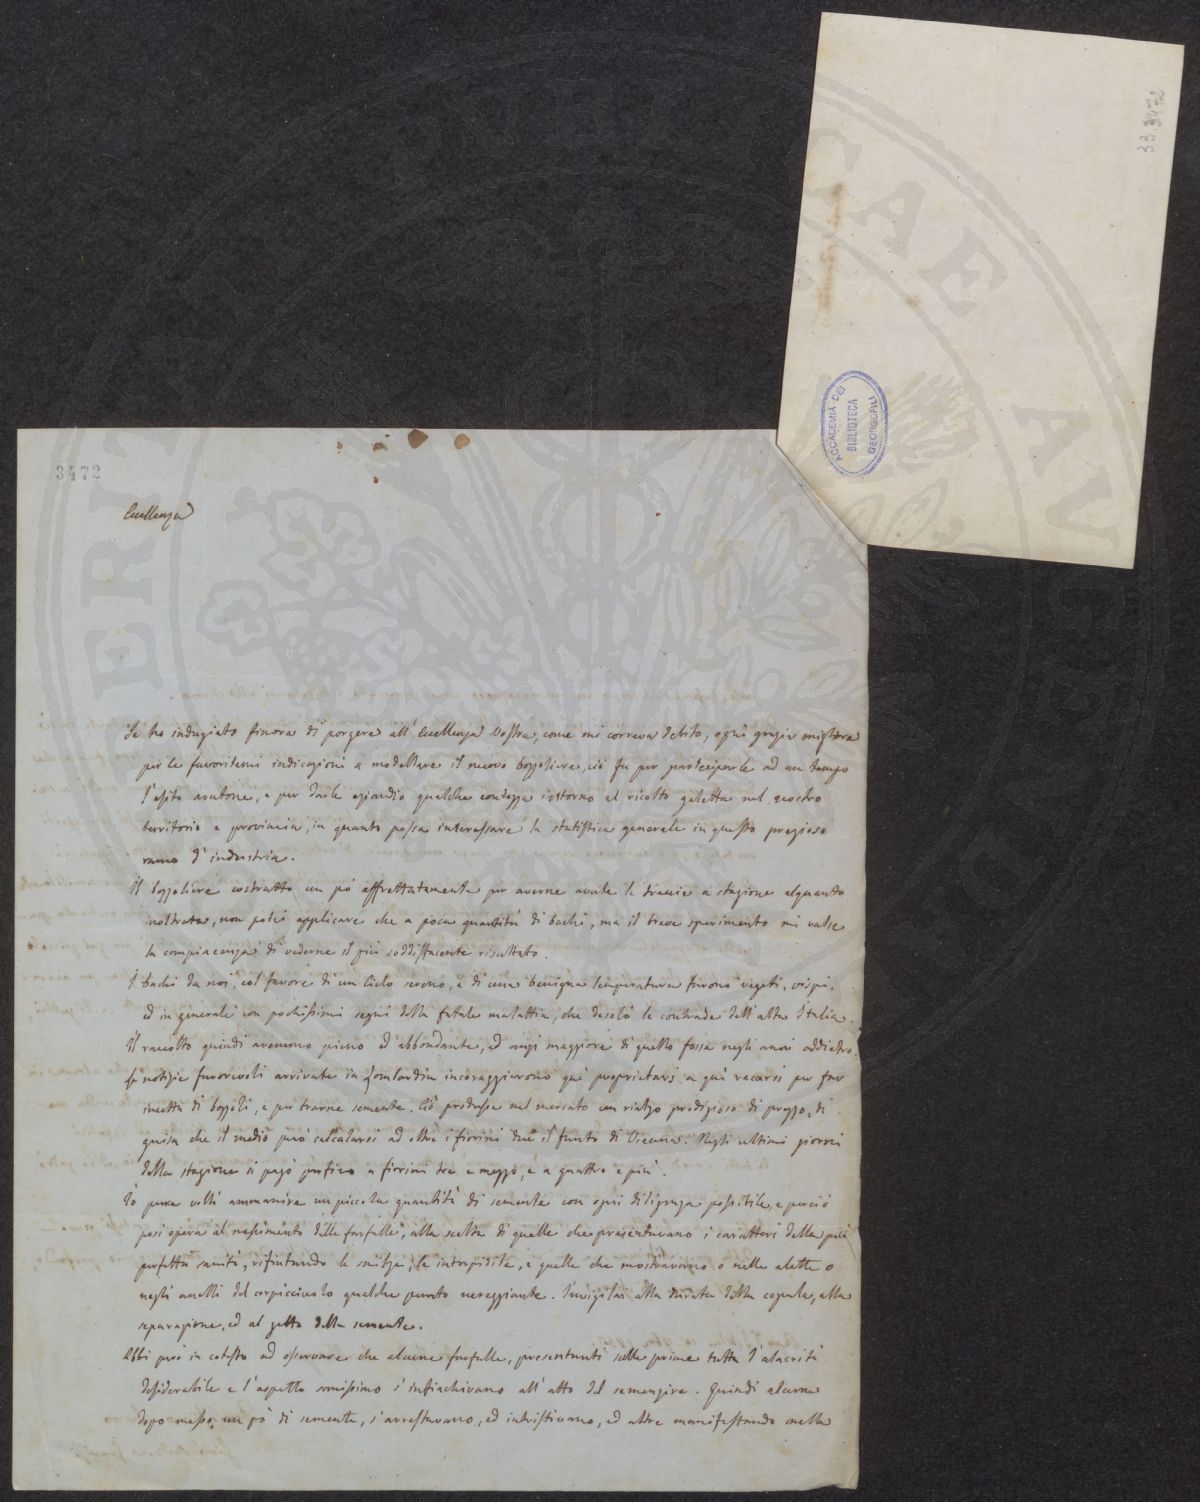 33.3472
ACCADEMIA DEI
BIBLIOTECA
GEORGOFILI
3472
Eccellenza
Se ho indugiato finora di porgere all' Eccellenza Vostra, come mi correva debito, ogni grazia migliore
per le favoritemi indicazioni a modellare il nuovo bozzoliere, ciò fu per parteciparle ad un tempo
l'esito avutone, e per darle eziandio qualche contezza intorno al ricolto galetta nel nostro
territorio e provincia, in quanto possa interessare la statistica generale in questo prezioso
ramo d' industria.
Il bozzoliere costrutto un pò affrettatamente per averne avute le traccie a stagione alquanto
inoltrata, non potei applicare che a poca quantità di bachi, ma il breve sperimento mi valse
la compiacenza di vederne il più soddisfacente risultato.
I bachi da noi, col favore di un Cielo sereno, e di una benigna temperatura furono vegeti, vispi,
ed in generale con pochissimi segni della fatale malattia, che desolò le contrade dell' alta Italia.
Il raccolto quindi avemmo pieno ed abbondante, ed anzi maggiore di quello fosse negli anni addietro.
Le notizie favorevoli arrivate in Lombardia incoraggiarono que' proprietarj a quì recarsi per far
incetta di bozzoli, e per trarne semente. Ciò produsse nel mercato un rialzo prodigioso di prezzo, di
guisa che il medio può calcolarsi ad oltre i fiorini due il funto di Vienna. Negli ultimi giorni
della stagione si pagò persino a fiorini tre e mezzo, e a quattro e più.
Io pure volli ammanire un piccola quantità di semente con ogni diligenza possibile, e perciò
posi opera al nascimento delle farfalle, alla scelta di quelle che presentavano i caratteri della più
perfetta sanità, rifiutando le smilze, le intorpidite, e quelle che mostravano o nelle alette o
negli anelli del corpicciuolo qualche punto nereggiante. Invigilai alla durata della copula, alla
separazione, ed al getto della semente.
Ebbi però in cotesto ad osservare che alcune farfalle, presentanti sulle prime tutta l'alacrità
desiderabile e l'aspetto sanissimo s' infiachivano all' atto del semenzire. Quindi alcune
dopo messo un pò di semente, s'arrestavano, ed intristivano, ed altre manifestando nella